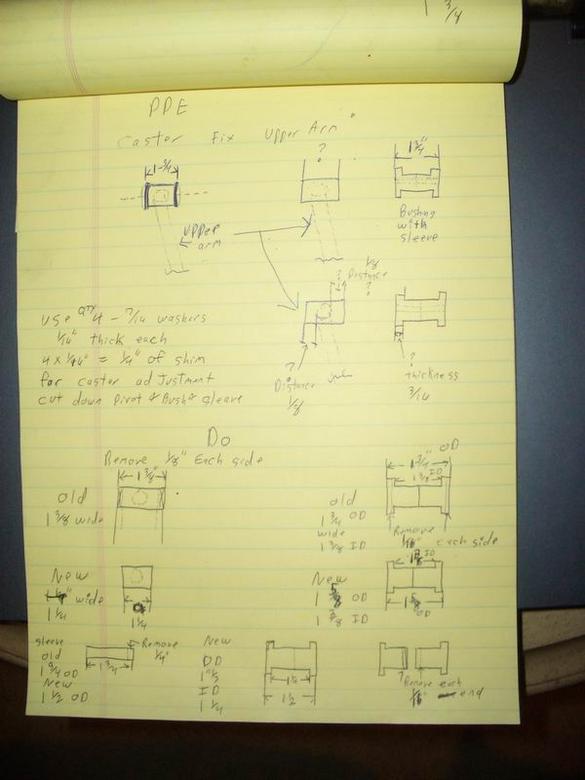 1 3/4
PPE
Caster Fix Upper Arm
1-3/4
?
1 3/4"
Bushng
with
sleeve
Upper
arm
1/8
Distance
?
?
use qty 4 - 7/16 washers
1/16" thick each
4 x 1/16" = 1/4" of shim
for caster adjustment
cut down Pivot & Bush & sleeve
?
Distance
1/8
?
thickness
3/16
Do
Remove 1/8" Each side
1 3/8"
old
1 3/8 wide
OD
1 3/4"
1 3/8 ID
old
1 3/4 OD
wide
1 3/8 ID
Remove
1/16" each side
New
wide
1 1/4
New
1 5/8 OD
1 3/8 ID
ID
1 5/8
OD
sleeve
old
1 3/4 OD
New
1 1/2 OD
Remove
1/4"
1 3/4
New
OD
1 1/2
ID
1 1/4
1 1/2
1 1/2
?
Remove each
1/16" end